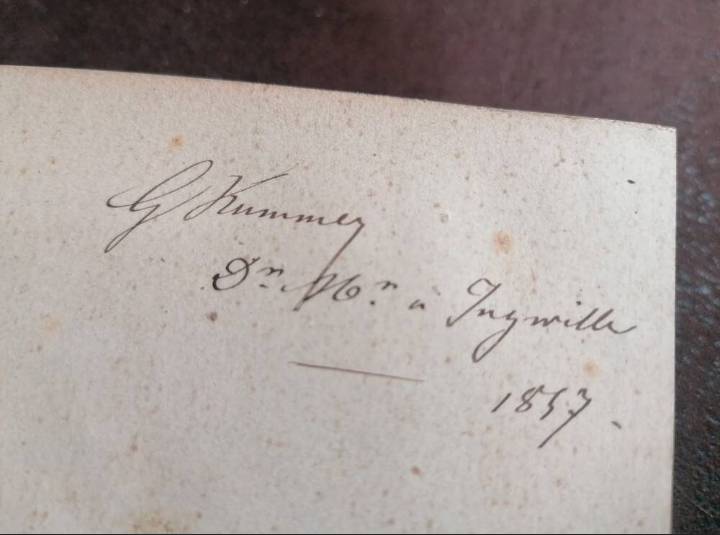 G Kummer
Dr Mn à Ingwille
1857.